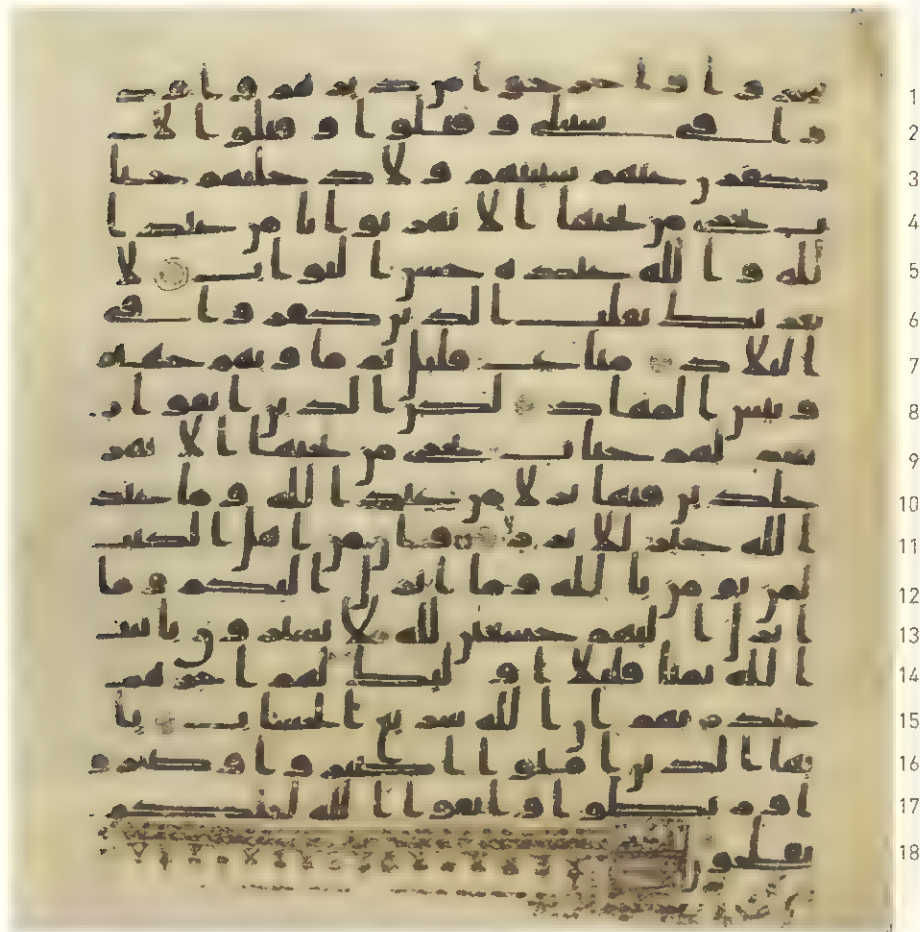 1 جروا واخرجوا من ديرهم واوذ
2 وا في سبيلي وقتلوا وقتلوا لا
3 كفرن عنهم سيتهم ولادخلنهم جنا
4 ت تجري من تحتها الانهر ثوابا من عند ا
5 لله والله عنده حسن الثواب لا
6 يغرنك تقلب الذين كفروا في
7 البلاد متاع قليل ثم ماويهم جهنم
8 وبيس المهاد لكن الذين اتقوا ر
9 بهم لهم جنات تجري من تحتها الانهر
10 خلدين فيها نزلا من عند الله وما عند
11 الله خير للابرار وان من اهل الكتب
12 لمن يومن بالله وما انزل اليكم وما
13 انزل اليهم خشعين لله لا يشترون بايت
14 الله ثمنا قليلا اوليك لهم اجرهم
15 عند ربهم ان الله سريع الحساب يا
16 يها الذين امنوا اصبروا وصبروا و
17 رابطوا واتقوا الله لعلكم
18 تفلحون